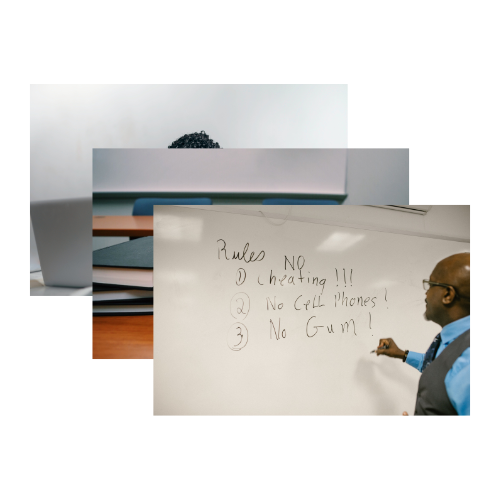 Rules
NO
① cheating !!!
② No Cell Phones !
③ No Gum !